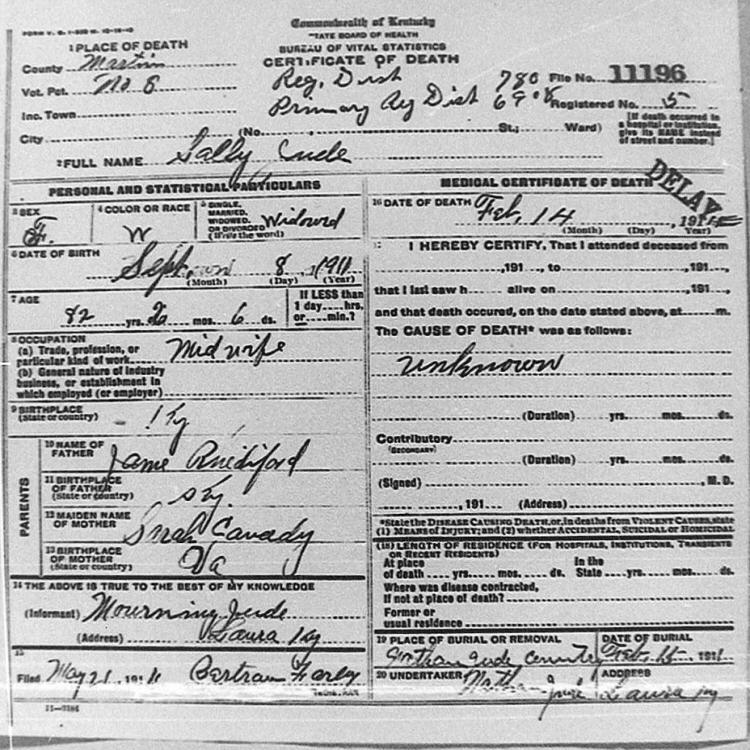 Commonwealth of Kentucky
STATE BOARD OF HEALTH
BUREAU OF VITAL STATISTICS
CERTIFICATE OF DEATH
1 PLACE OF DEATH
County Martin
Vot. Pct. No 8
Inc. Town
City
Reg. Dist 780 File No. 11196
Primary Reg Dist Registered No. 5
(No. St.; Ward)
[If death occurred in a hospital or institution, give its NAME instead of street and number.]
2 FULL NAME Sally Jude
DELAY
PERSONAL AND STATISTICAL PARTICULARS
3 SEX F.
4 COLOR OR RACE W
5 SINGLE, MARRIED, WIDOWED, OR DIVORCED (Write the word) Widowed
6 DATE OF BIRTH Sept. 8, 1911
(Month) (Day) (Year)
7 AGE 82 yrs. mos. 6 ds.
If LESS than 1 day....hrs. or....min.?
8 OCCUPATION
(a) Trade, profession, or particular kind of work Midwife
(b) General nature of industry business, or establishment in which employed (or employer)
9 BIRTHPLACE (State or country) Ky
PARENTS
10 NAME OF FATHER Jame
11 BIRTHPLACE OF FATHER (State or country) Ky.
12 MAIDEN NAME OF MOTHER Sarah Canady
13 BIRTHPLACE OF MOTHER (State or country) Va
14 THE ABOVE IS TRUE TO THE BEST OF MY KNOWLEDGE
(Informant) Mourning Jude
(Address) Laura Ky
15
Filed May 21, 1911 Bertram
REGISTRAR
11-3184
MEDICAL CERTIFICATE OF DEATH
16 DATE OF DEATH Feb, 14, 191
(Month) (Day) (Year)
17 I HEREBY CERTIFY, That I attended deceased from
, 191 , to , 191 ,
that I last saw h alive on , 191 ,
and that death occured, on the date stated above, at m.
The CAUSE OF DEATH* was as follows:
unknown
(Duration) yrs. mos. ds.
Contributory
(SECONDARY)
(Duration) yrs. mos. ds.
(Signed) , M. D.
, 191 (Address)
*State the DISEASE CAUSING DEATH, or, in deaths from VIOLENT CAUSES, state
(1) MEANS OF INJURY; and (2) whether ACCIDENTAL, SUICIDAL or HOMICIDAL
(18) LENGTH OF RESIDENCE (FOR HOSPITALS, INSTITUTIONS, TRANSIENTS OR RECENT RESIDENTS)
At place of death yrs. mos. ds. In the State yrs. mos. ds.
Where was disease contracted, if not at place of death?
Former or usual residence
19 PLACE OF BURIAL OR REMOVAL Jude
DATE OF BURIAL Feb. 15 1911
20 UNDERTAKER Jude
ADDRESS Laura Ky